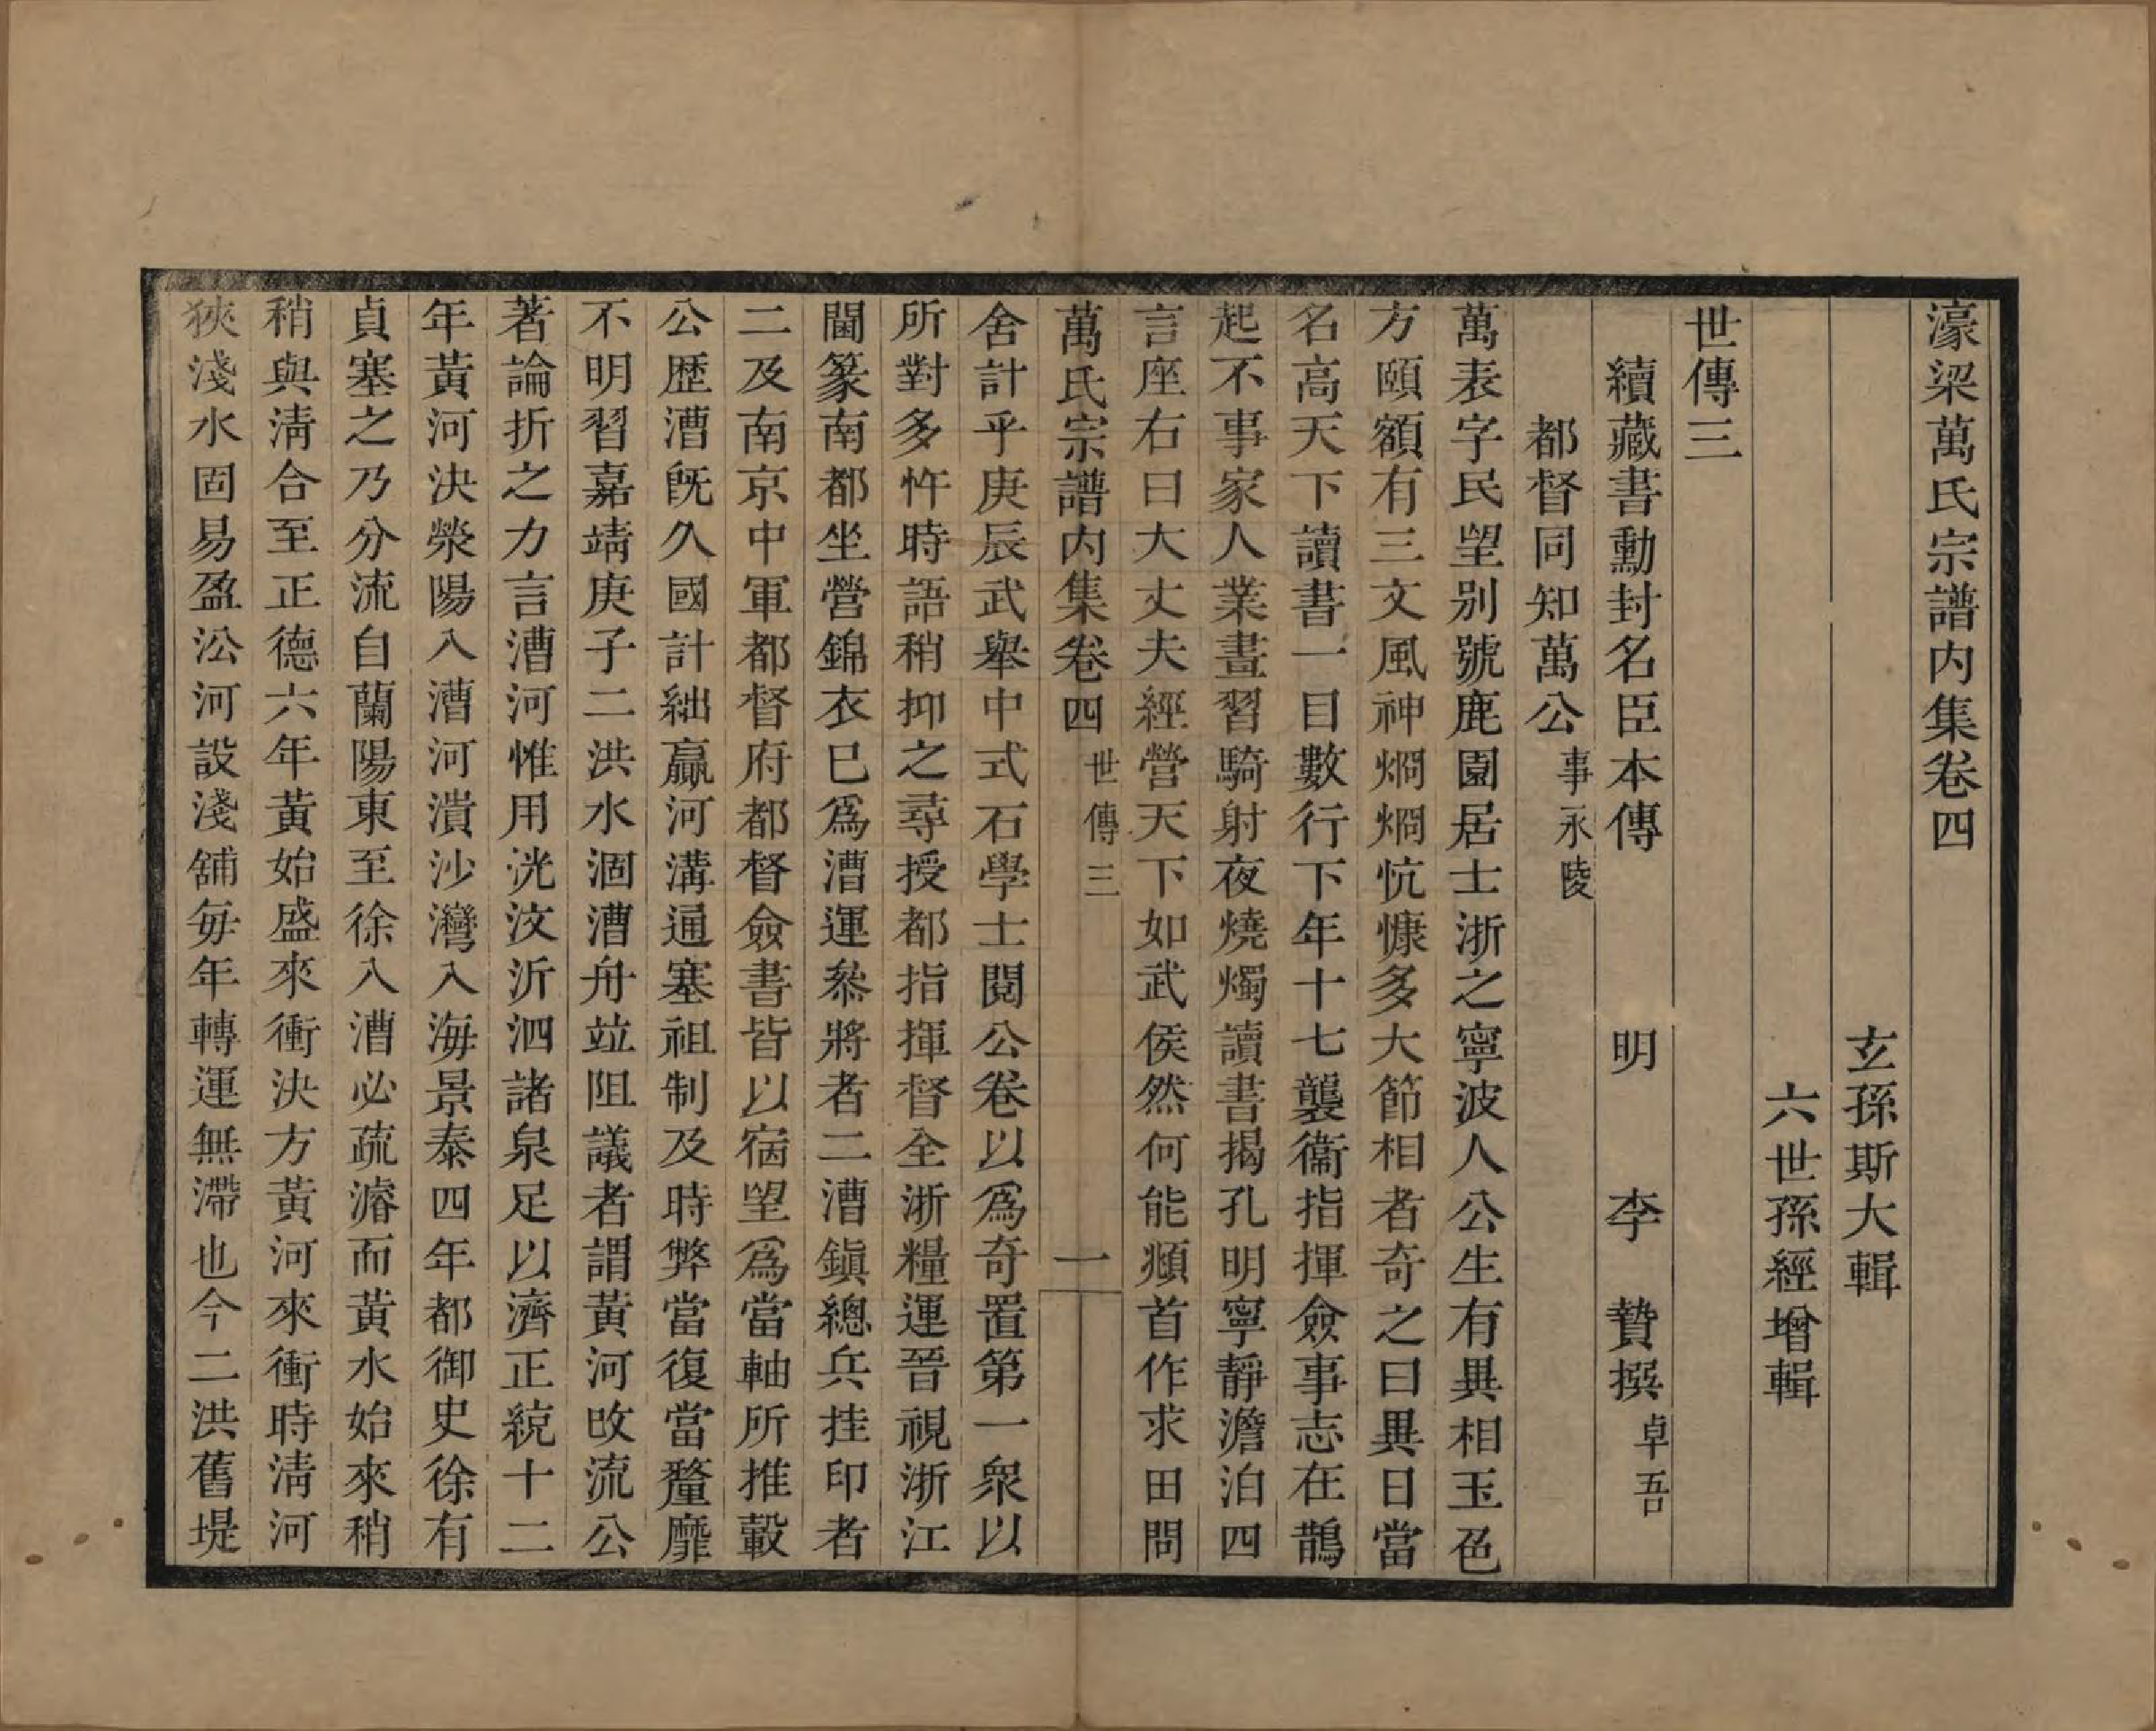 濠梁萬氏宗譜内集卷四
玄孫斯大輯
六世孫經增輯
世傳三
續藏書勳封名臣本傳　明　李　贄撰卓吾
都督同知萬公事永陵
萬表字民望别號鹿園居士浙之寧波人公生有異相玉色
方頤額有三文風神烱烱忼慷多大節相者奇之曰異日當
名高天下讀書一目數行下年十七襲衞指揮僉事志在鵲
起不事家人業晝習騎射夜燒燭讀書揭孔明寧靜澹泊四
言座右曰大丈夫經營天下如武侯然何能頫首作求田問
萬氏宗譜内集卷四　世傳三　一
舍計乎庚辰武舉中式石學士閱公卷以爲奇置第一衆以
所對多忤時語稍抑之尋授都指揮督全浙糧運晉視浙江
閫篆南都坐營錦衣已爲漕運叅將者二漕鎭總兵挂印者
二及南京中軍都督府都督僉書皆以宿望爲當軸所推轂
公歷漕旣久國計絀贏河溝通塞祖制及時弊當復當釐靡
不明習嘉靖庚子二洪水涸漕舟竝阻議者謂黃河攺流公
著論折之力言漕河惟用洸汶沂泗諸泉足以濟正統十二
年黃河決滎陽入漕河潰沙灣入海景泰四年都御史徐有
貞塞之乃分流自蘭陽東至徐入漕必疏濬而黃水始來稍
稍與淸合至正德六年黃始盛來衝決方黃河來衝時淸河
狹淺水固易盈㳂河設淺舖每年轉運無滯也今二洪舊堤